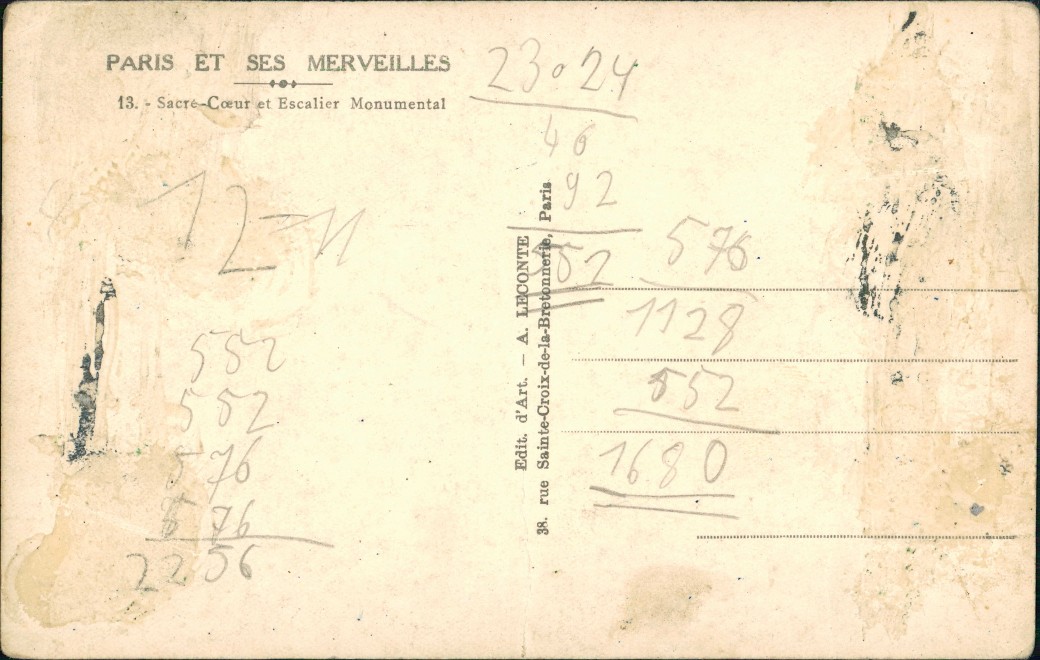 PARIS ET SES MERVEILLES
13. - Sacré-Cœur et Escalier Monumental
23 o 24
46
92
552
12-11
552
552
576
576
2256
Edit. d'Art. — A. LECONTE
38. rue Sainte-Croix-de-la-Bretonnerie, Paris
576
1128
552
1680